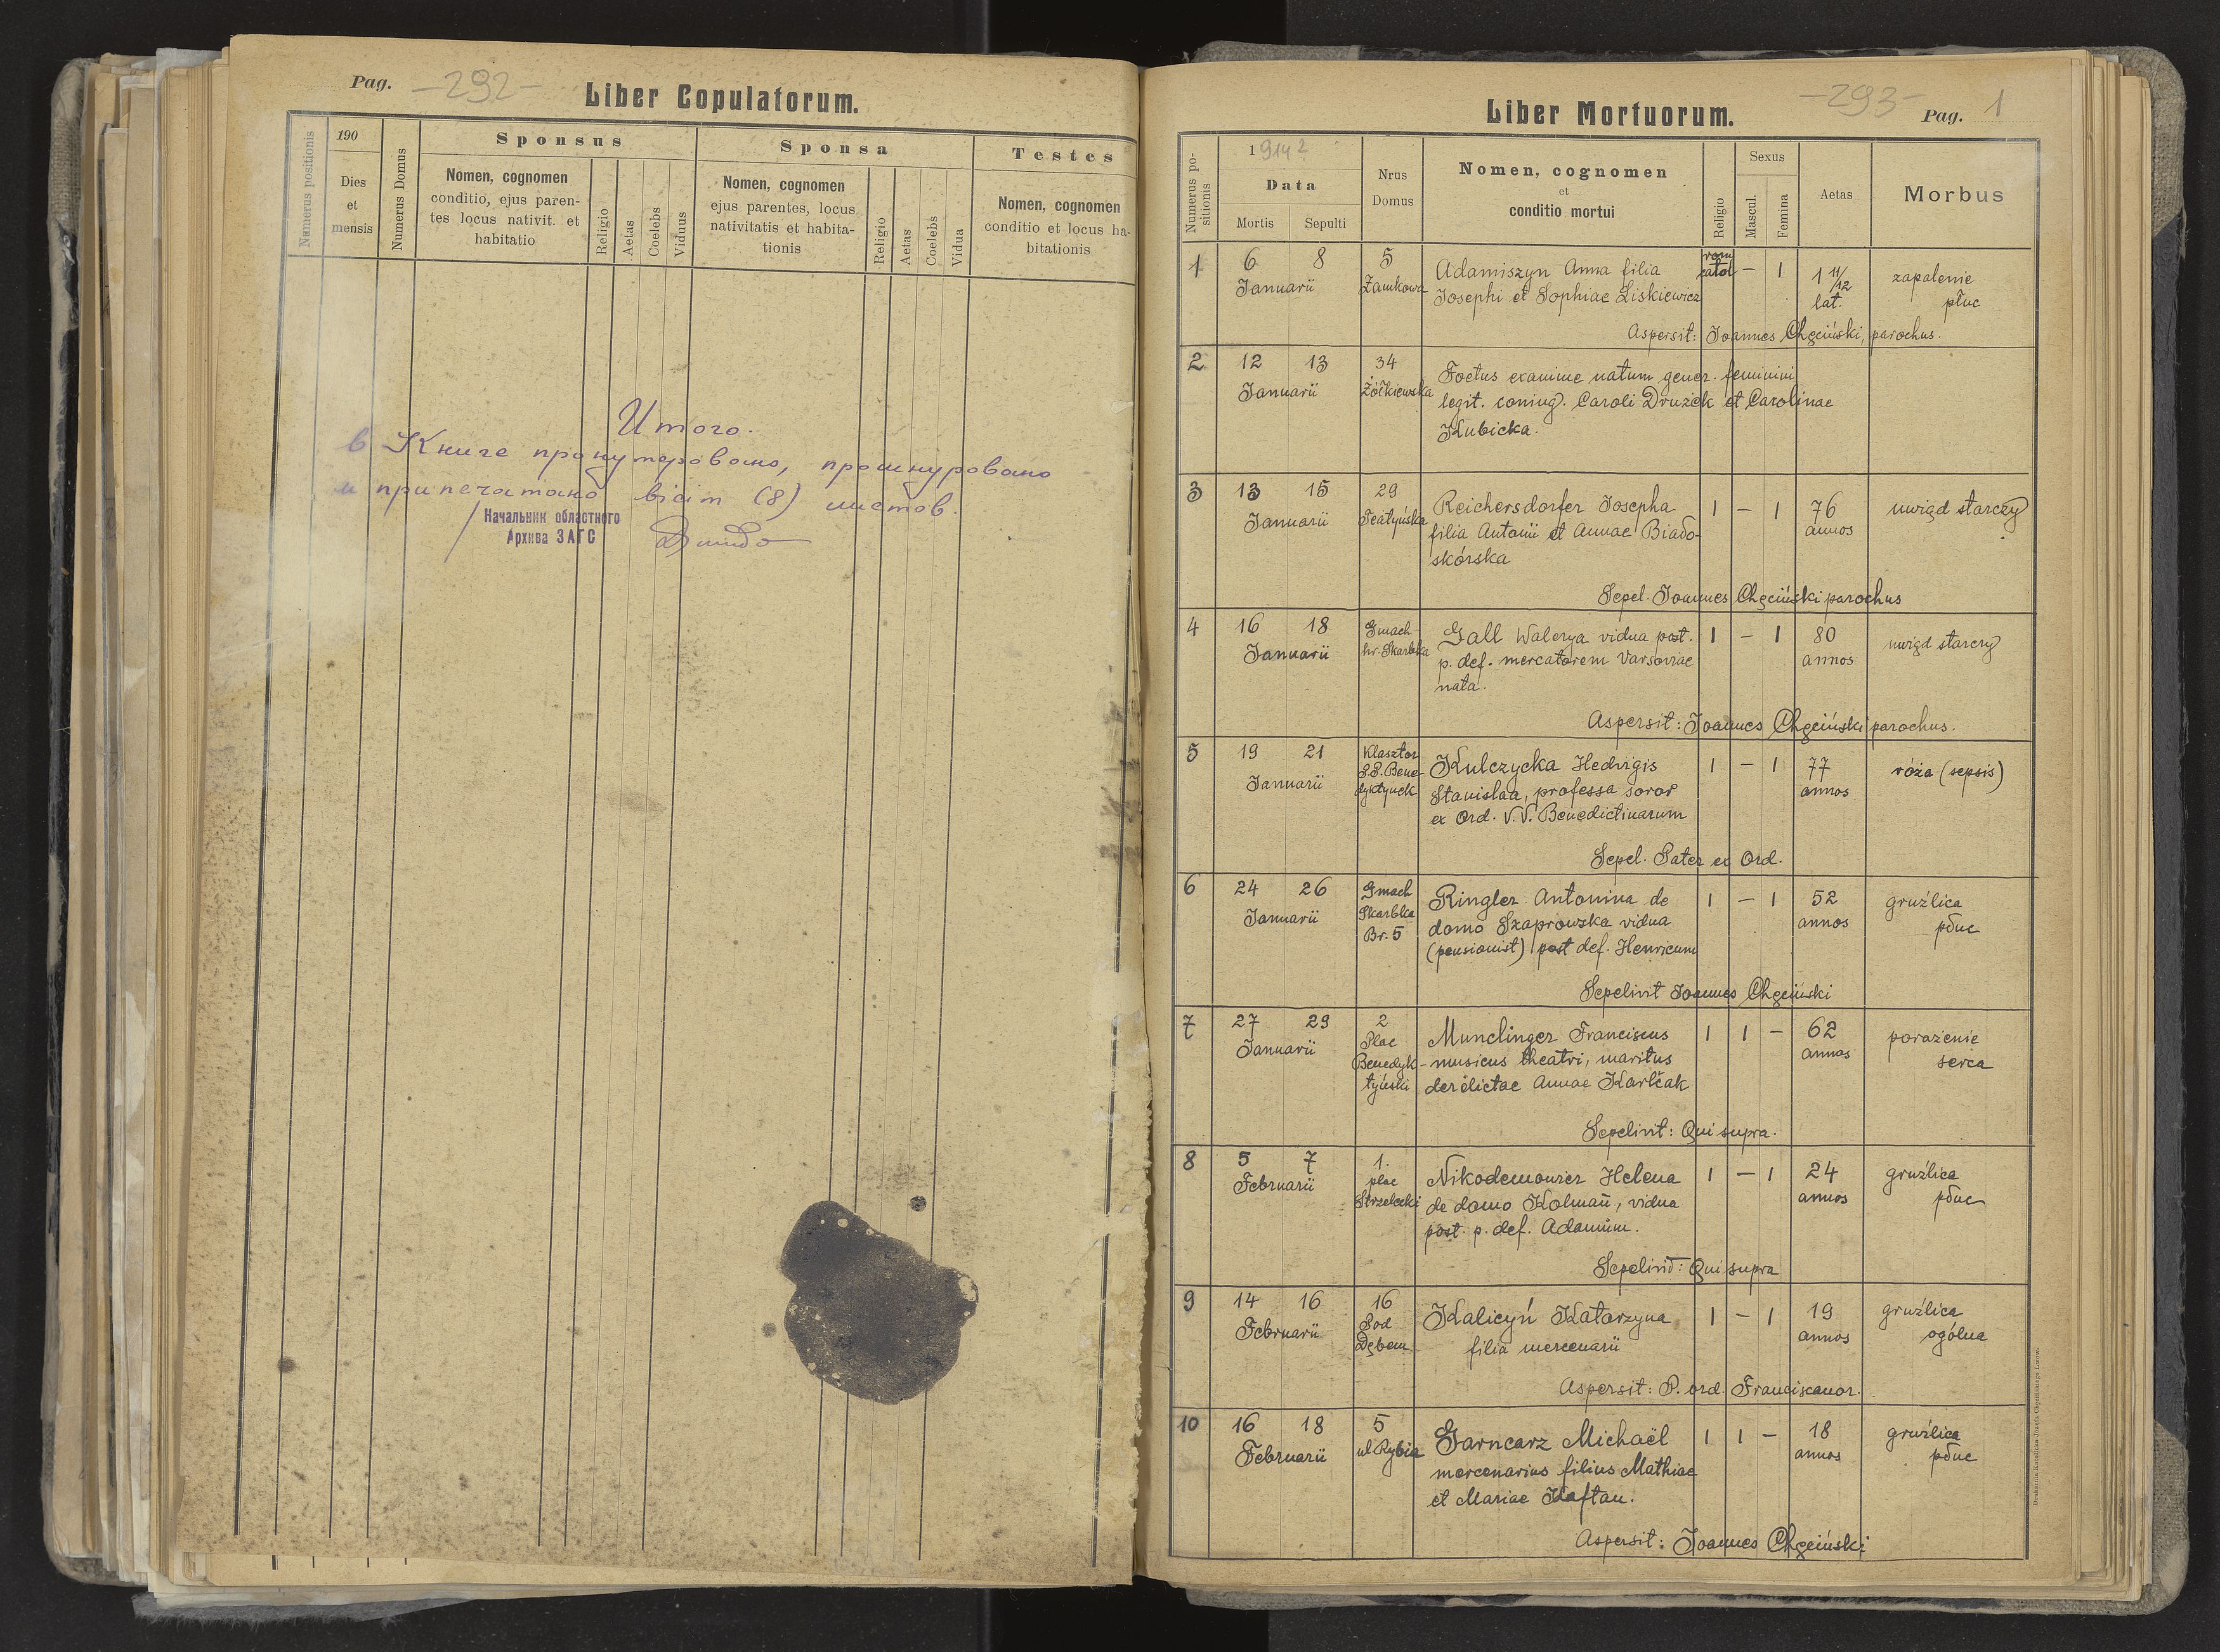 Pag. -292-
Liber Copulatorum.
Numerus positionis
190
Dies
et
mensis
Numerus Domus
Sponsus
Nomen, cognomen
conditio, ejus paren-
tes locus nativit. et
habitatio
Religio
Aetas
Coelebs
Viduus
Sponsa
Nomen, cognomen
ejus parentes, locus
nativitatis et habita-
tionis
Religio
Aetas
Coelebs
Vidua
Testes
Nomen, cognomen
conditio et locus ha-
bitationis
Итого.
в Книге пронумеровано, прошнуровано
и припечатано вісім (8) листов.
Начальник областного
Архива ЗАГС
Liber Mortuorum.
-293-
Pag. 1
Numerus po-
sitionis
1914 2
Data
Mortis
Sepulti
Nrus
Domus
Nomen, cognomen
et
conditio mortui
Religio
Sexus
Mascul.
Femina
Aetas
Morbus
1 6 8 5 Adamiszyn Anna filia rom - 1 1 11/12 zapalenie
Januarii Zamkowa Josephi et Sophiae Liskiewicz catol lat. płuc
Aspersit: Joannes Chęciński, parochus.
2 12 13 34 Foetus exanime natum gener. feminini
Januarii Żółkiewska legit. coniug. Caroli Druzek et Carolinae
Kubicka.
3 13 15 29 Reichersdorfer Josepha 1 - 1 76 uwiąd starczy
Januarii Teatyńska filia Antonii et Annae Biado- annos
skórska
Sepel. Joannes Chęciński parochus
4 16 18 Gmach Gall Walerya vidua post. 1 - 1 80 uwiąd starczy
Januarii hr. Skarbka p. def. mercatorem Varsoviae annos
nata.
Aspersit: Joannes Chęciński parochus.
5 19 21 Klasztor Kulczycka Hedvigis 1 - 1 77 róża (sepsis)
Januarii S.S. Bene- Stanislaa, professa soror annos
dyktynek ex Ord. V.V. Benedictinarum
Sepel. Pater ex Ord.
6 24 26 Gmach Ringler Antonina de 1 - 1 52 gruźlica
Januarii Skarbka domo Szaprowska vidua annos płuc
Br. 5 (pensionist) post def. Henricum
Sepelivit Joannes Chęciński
7 27 29 2 Munclinger Franciscus 1 1 - 62 porażenie
Januarii Plac musicus theatri, maritus annos serca
Benedyk-
tyński derelictae Annae Karlčak
Sepelivit: Qui supra.
8 5 7 1. Nikodemowicz Helena 1 - 1 24 gruźlica
Februarii plac de domo Kolmań, vidua annos płuc
Strzelecki post. p. def. Adamum.
Sepelivit: Qui supra
9 14 16 16 Kalicyń Katarzyna 1 - 1 19 gruźlica
Februarii Pod filia mercenarii annos ogólna
Dębem
Aspersit: P. ord. Franciscanor.
10 16 18 5 Garncarz Michaël 1 1 - 18 gruźlica
Februarii ul. Rybia mercenarius filius Mathiae annos płuc
et Mariae Kaftan.
Aspersit: Joannes Chęciński